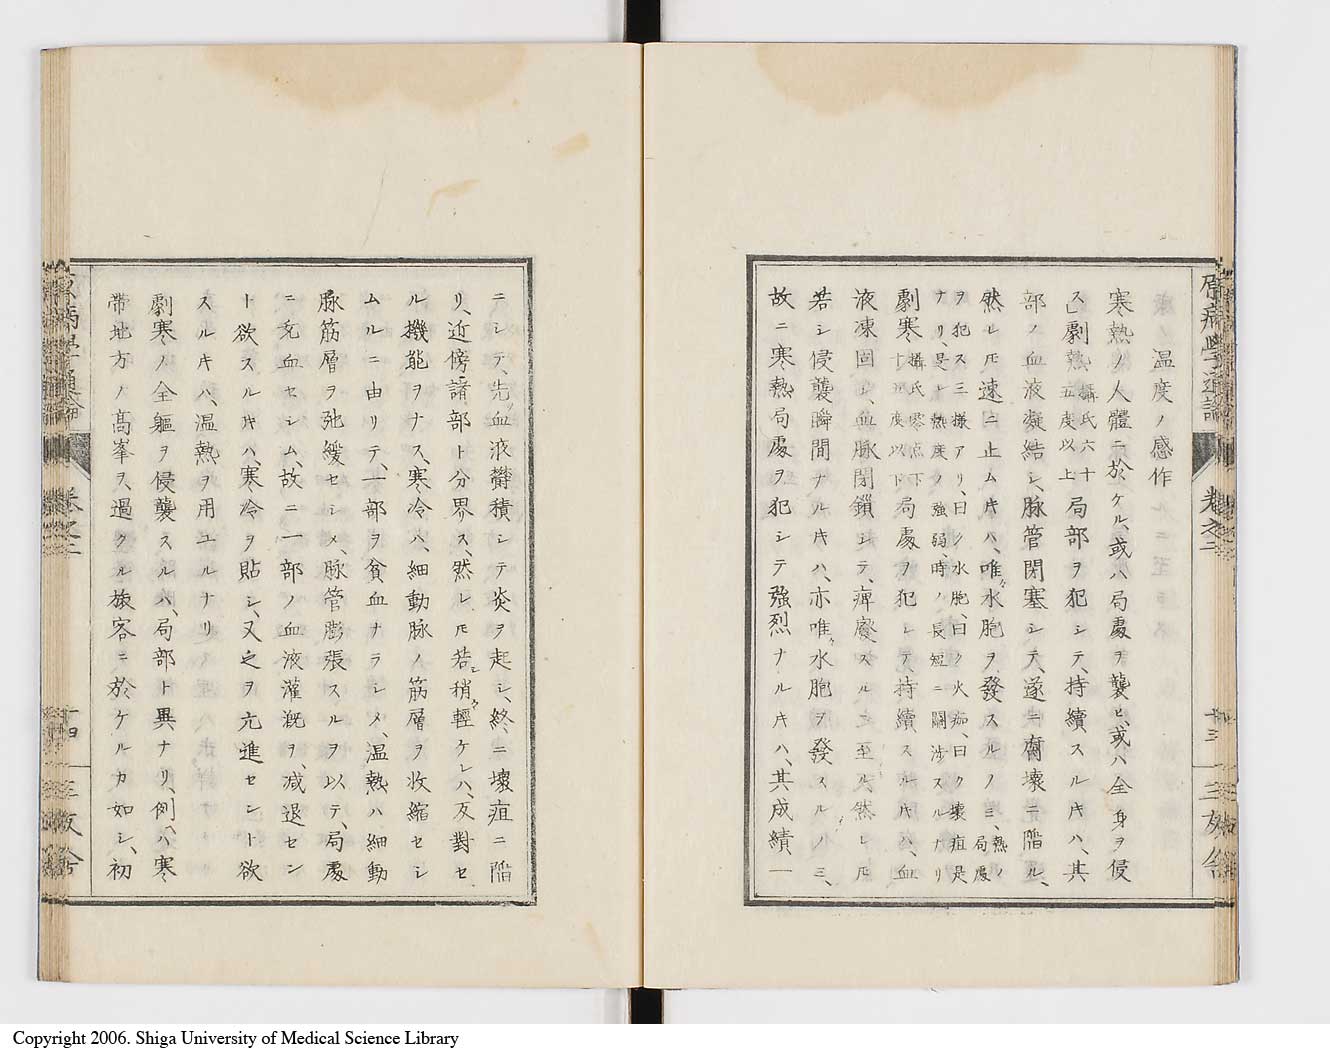 原病學通論
卷之二
十三
三友舍
温度ノ感作
寒熱ノ人體ニ於ケル、或ハ局處ヲ襲ヒ、或ハ全身ヲ侵
ス、劇熱 攝氏六十五度以上 局部ヲ犯シテ、持續スルキハ、其
部ノ血液凝結シ、脉管閉塞シテ、遂ニ腐壞ニ陷ル、
然レ𪜈速ニ止ムキハ、唯水胞ヲ發スルノミ、 熱ノ局處
ヲ犯ス三様アリ、曰ク水胞、曰ク火痂、曰ク壞疽是
ナリ、是レ熱度ノ強弱、時ノ長短ニ關涉スルナリ
劇寒 攝氏零点下十五度以下 局處ヲ犯シテ、持續スルキハ、血
液凍固シ、血脉閉鎖シテ、痺癈スルニ至ル、然レ𪜈
若シ侵襲瞬間ナルキハ、亦唯水胞ヲ發スルノミ、
故ニ寒熱局處ヲ犯シテ強烈ナルキハ、其成績一
ニシテ、先ツ血液欝積シテ炎ヲ起シ、終ニ壞疽ニ陷
リ、近傍諸部ト分界ス、然レ𪜈若シ稍輕ケレハ、反對セ
ル機能ヲナス、寒冷ハ、細動脉ノ筋層ヲ收縮セシ
ムルニ由リテ、一部ヲ貧血ナラシメ、温熱ハ細動
脉筋層ヲ弛緩セシメ、脉管膨張スルヲ以テ、局處
ニ充血セシム、故ニ一部ノ血液灌漑ヲ、減退セン
ト欲スルキハ、寒冷ヲ貼シ、又之ヲ亢進セント欲
スルキハ、温熱ヲ用ユルナリ
劇寒ノ全軀ヲ侵襲スルハ、局部ト異ナリ、例ハ寒
帶地方ノ高峯ヲ、過クル旅客ニ於ケルカ如シ、初
原病學通論
卷之二
十四
三友舍
Copyright 2006. Shiga University of Medical Science Library